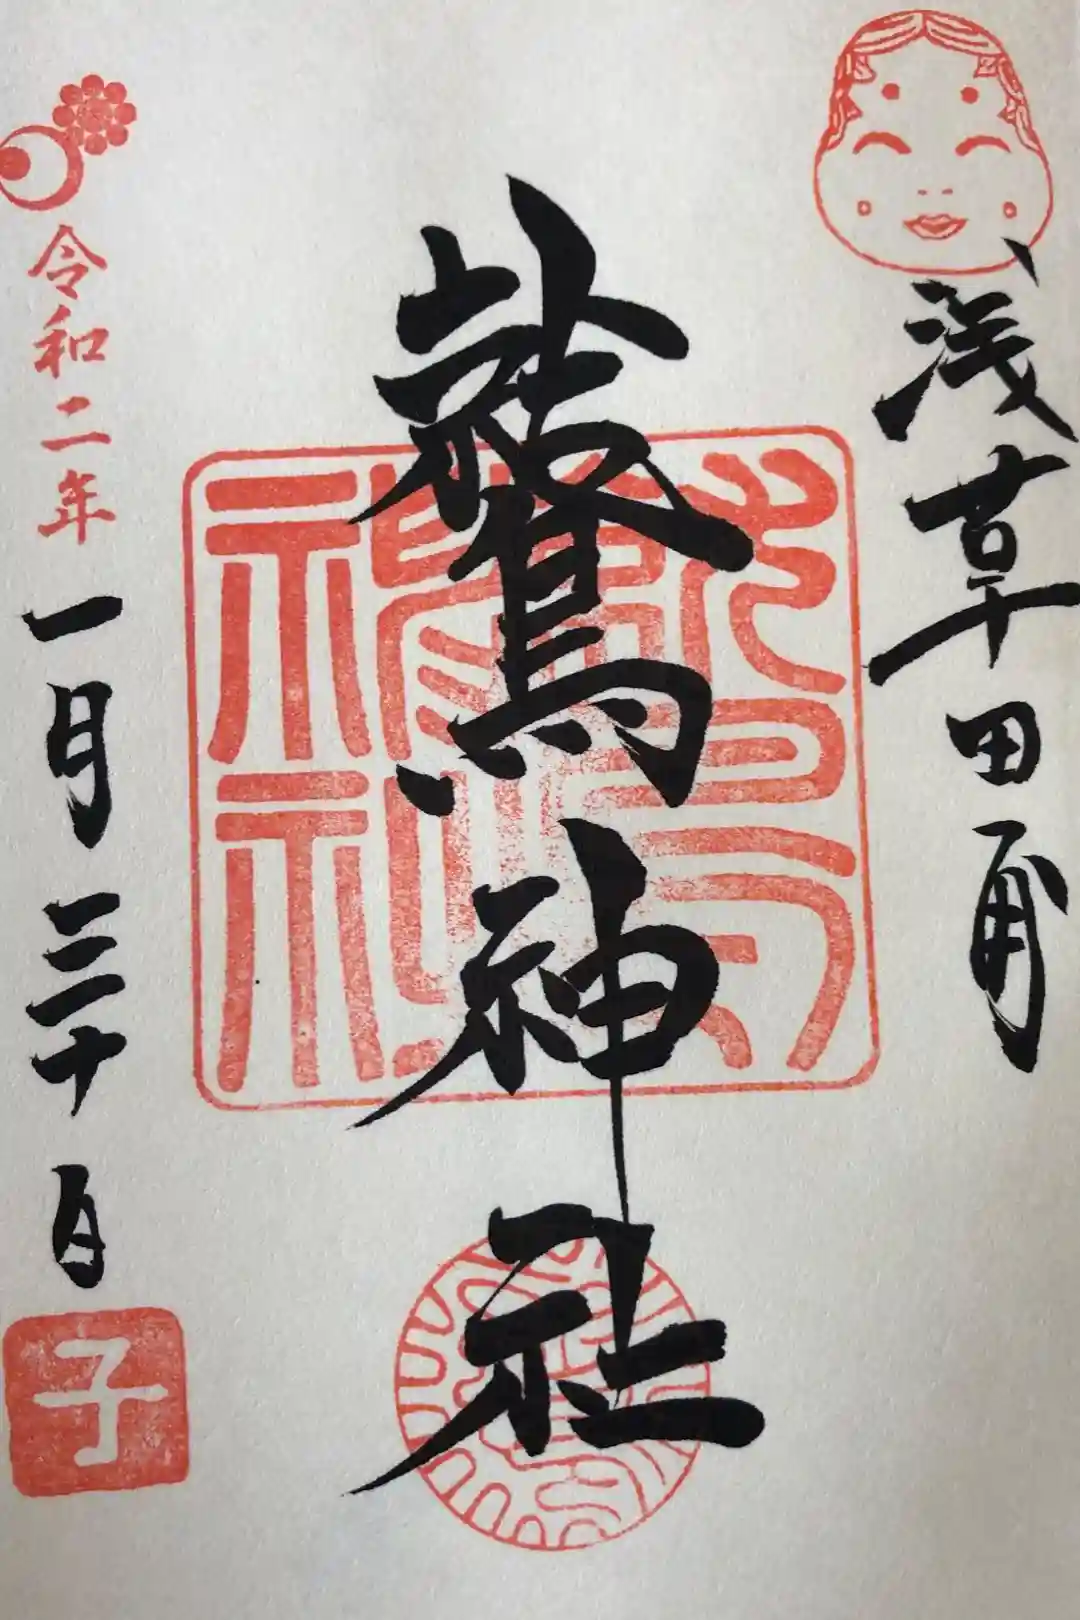 浅草田甫
鷲神社
令和二年一月三十日
子